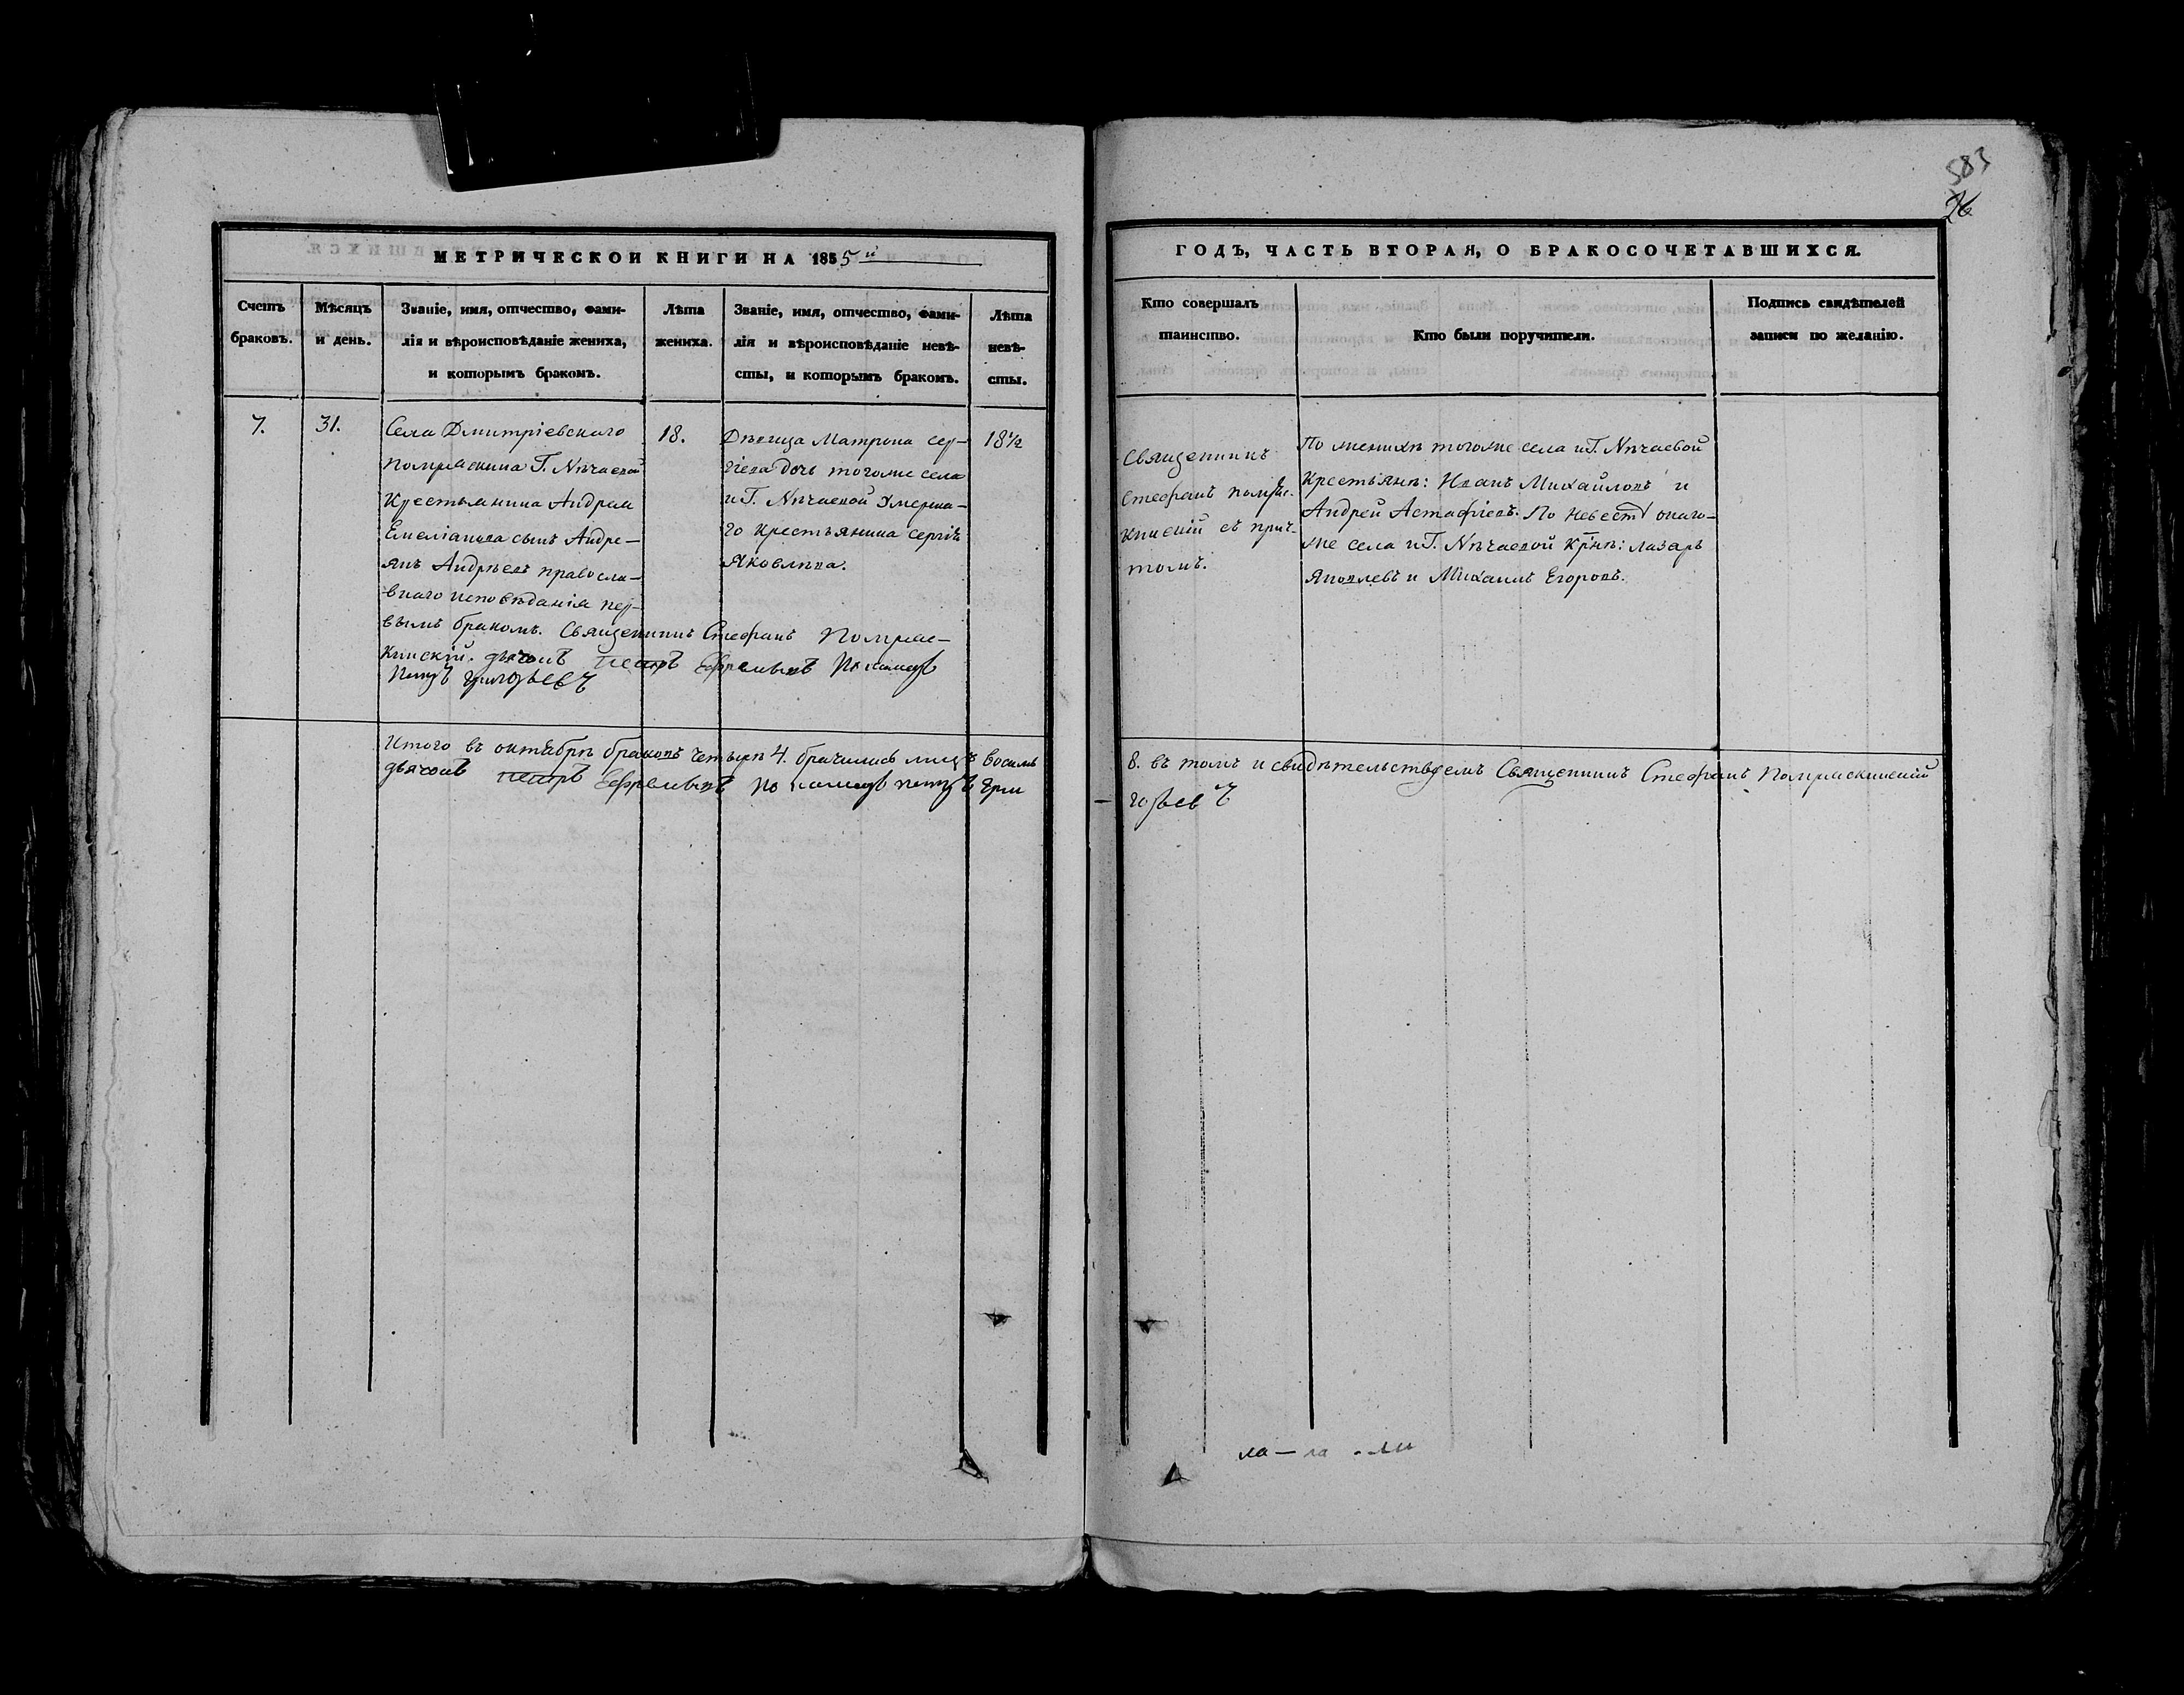 583
26
МЕТРИЧЕСКОЙ КНИГИ НА 1855й
Счетъ браковъ.
Мѣсяцъ и день.
Званіе, имя, отчество, фами-
лія и вѣроисповѣданіе жениха,
и которымъ бракомъ.
Лѣта жениха.
Званіе, имя, отчество, фами-
лія и вѣроисповѣданіе невѣ-
сты, и которымъ бракомъ.
Лѣта
невѣ-
сты.
7.
31.
Села Дмитріевскаго
Помряскина Г. Нѣчаевой
Крестьянина Андрея
Емеліанова сынъ Андре-
янъ Андрѣевъ правосла-
внаго исповѣданія пер-
вымъ бракомъ. Священникъ Стефанъ Помряс-
кинскій. дьячокъ Петръ Ефремовъ Пономарь
Петръ Григорьевъ
18.
Дѣвица Матрона Сер-
гіева дочь тогоже села
и Г. Нѣчаевой Умерша-
го крестьянина Сергія
Яковлева.
18 1/2
Итого въ октябрѣ браковъ четыре 4. брачились лицъ восемь
дьячокъ Петръ Ефремовъ Пономарь Петръ Гри
ГОДЪ, ЧАСТЬ ВТОРАЯ, О БРАКОСОЧЕТАВШИХСЯ.
Кто совершалъ
таинство.
Кто были поручители.
Подпись свидѣтелей
записи по желанію.
Священникъ
Стефанъ Помряс-
кинскій съ прич-
томъ.
По женихѣ тогоже села и Г. Нѣчаевой
Крестьяне: Иванъ Михайловъ и
Андрей Астафіевъ. По невестѣ онаго-
же села и Г. Нѣчаевой Крне: Лазарь
Яковлевъ и Михаилъ Егоровъ.
8. въ томъ и свидѣтельствуемъ Священникъ Стефанъ Помряскинскій
горьевъ